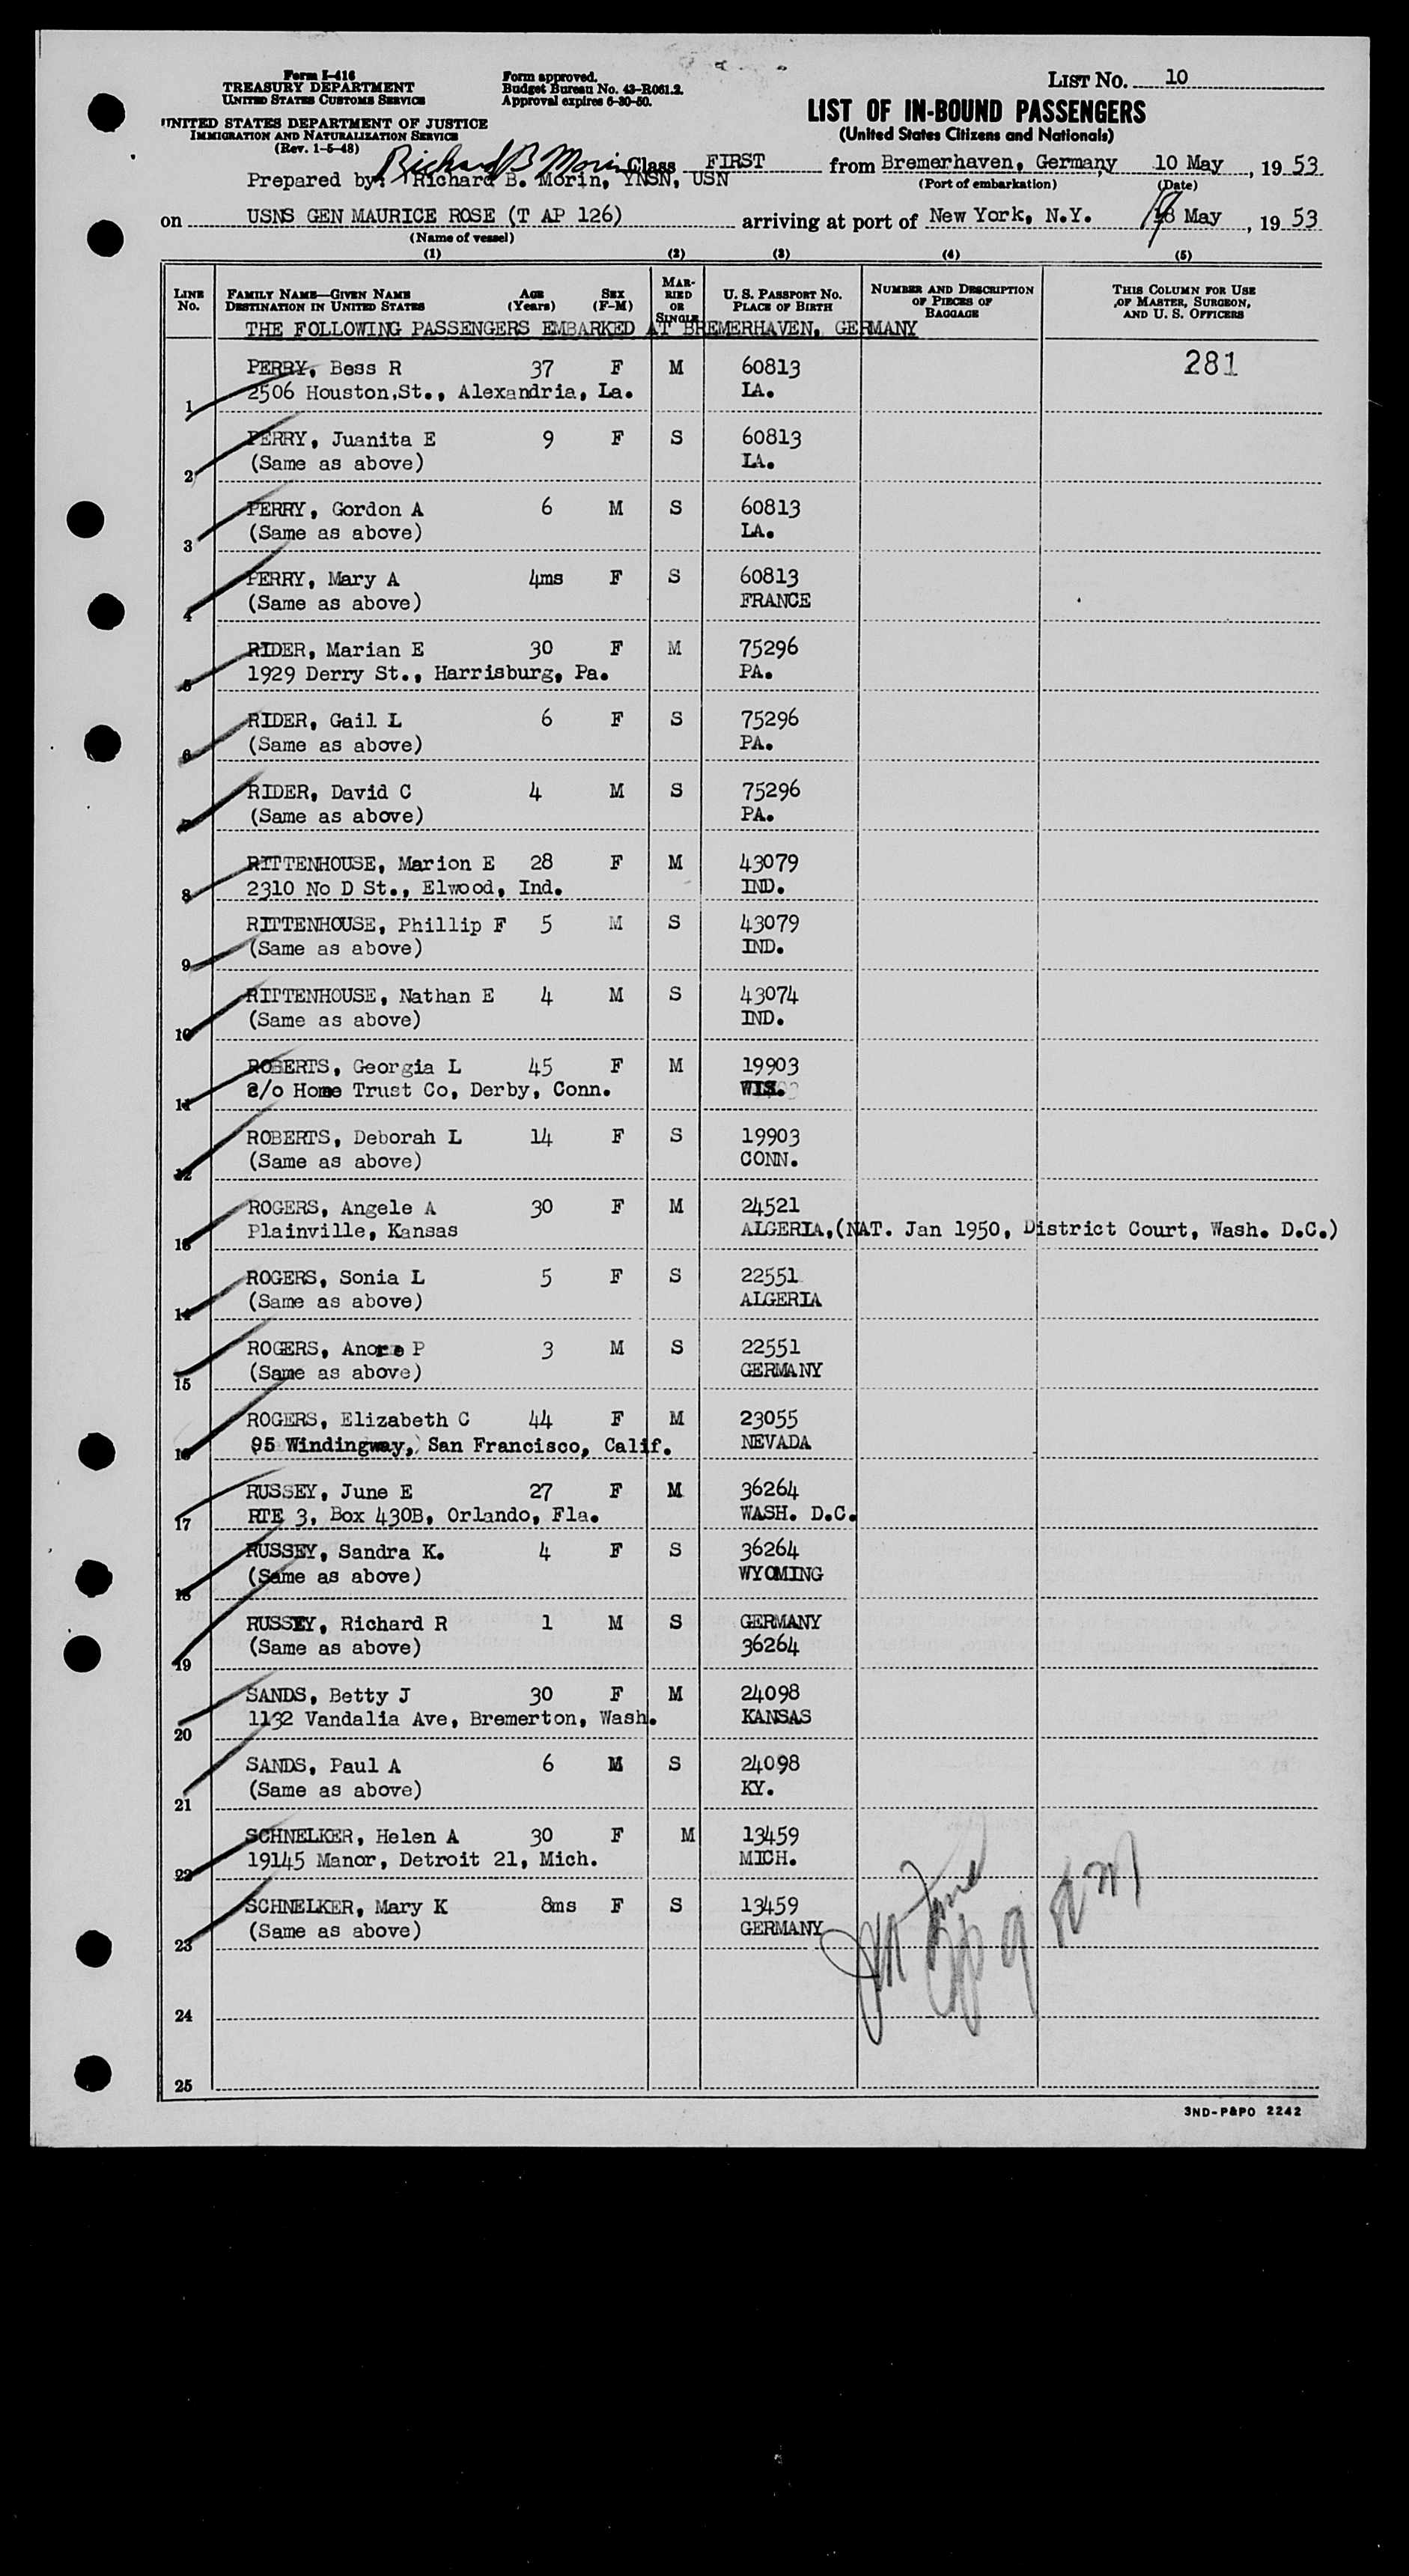 Form I-416
TREASURY DEPARTMENT
UNITED STATES CUSTOMS SERVICE
UNITED STATES DEPARTMENT OF JUSTICE
IMMIGRATION AND NATURALIZATION SERVICE
(Rev. 1-5-48)
Form approved.
Budget Bureau No. 43-R061.2.
Approval expires 6-30-50.
LIST NO. 10
LIST OF IN-BOUND PASSENGERS
(United States Citizens and Nationals)
Richard B Morin
Class FIRST from Bremerhaven, Germany, 10 May, 19 53
Prepared by: Richard B. Morin, YNSN, USN
(Port of embarkation) (Date)
on USNS GEN MAURICE ROSE (T AP 126) arriving at port of New York, N.Y. May, 19 53
(Name of vessel)
(1) (2) (3) (4) (5)
LINE NO. FAMILY NAME—GIVEN NAME DESTINATION IN UNITED STATES AGE (Years) SEX (F-M) MARRIED OR SINGLE U. S. PASSPORT NO. PLACE OF BIRTH NUMBER AND DESCRIPTION OF PIECES OF BAGGAGE THIS COLUMN FOR USE OF MASTER, SURGEON, AND U. S. OFFICERS
THE FOLLOWING PASSENGERS EMBARKED AT BREMERHAVEN, GERMANY
PERRY, Bess R 37 F M 60813 281
1 2506 Houston,St., Alexandria, La. LA.
PERRY, Juanita E 9 F S 60813
2 (Same as above) LA.
PERRY, Gordon A 6 M S 60813
3 (Same as above) LA.
PERRY, Mary A 4ms F S 60813
4 (Same as above) FRANCE
RIDER, Marian E 30 F M 75296
5 1929 Derry St., Harrisburg, Pa. PA.
RIDER, Gail L 6 F S 75296
6 (Same as above) PA.
RIDER, David C 4 M S 75296
7 (Same as above) PA.
RITTENHOUSE, Marion E 28 F M 43079
8 2310 No D St., Elwood, Ind. IND.
RITTENHOUSE, Phillip F 5 M S 43079
9 (Same as above) IND.
RITTENHOUSE, Nathan E 4 M S 43074
10 (Same as above) IND.
ROBERTS, Georgia L 45 F M 19903
11 c/o Home Trust Co, Derby, Conn. WIS.
ROBERTS, Deborah L 14 F S 19903
12 (Same as above) CONN.
ROGERS, Angele A 30 F M 24521
13 Plainville, Kansas ALGERIA,(NAT. Jan 1950, District Court, Wash. D.C.)
ROGERS, Sonia L 5 F S 22551
14 (Same as above) ALGERIA
ROGERS, P 3 M S 22551
15 (Same as above) GERMANY
ROGERS, Elizabeth C 44 F M 23055
16 95 Windingway, San Francisco, Calif. NEVADA
RUSSEY, June E 27 F M 36264
17 RTE 3, Box 430B, Orlando, Fla. WASH. D.C.
RUSSEY, Sandra K. 4 F S 36264
18 (Same as above) WYOMING
RUSSEY, Richard R 1 M S GERMANY
19 (Same as above) 36264
SANDS, Betty J 30 F M 24098
20 1132 Vandalia Ave, Bremerton, Wash. KANSAS
SANDS, Paul A 6 M S 24098
21 (Same as above) KY.
SCHNELKER, Helen A 30 F M 13459
22 19145 Manor, Detroit 21, Mich. MICH.
SCHNELKER, Mary K 8ms F S 13459
23 (Same as above) GERMANY
24
25
3ND-P&PO 2242